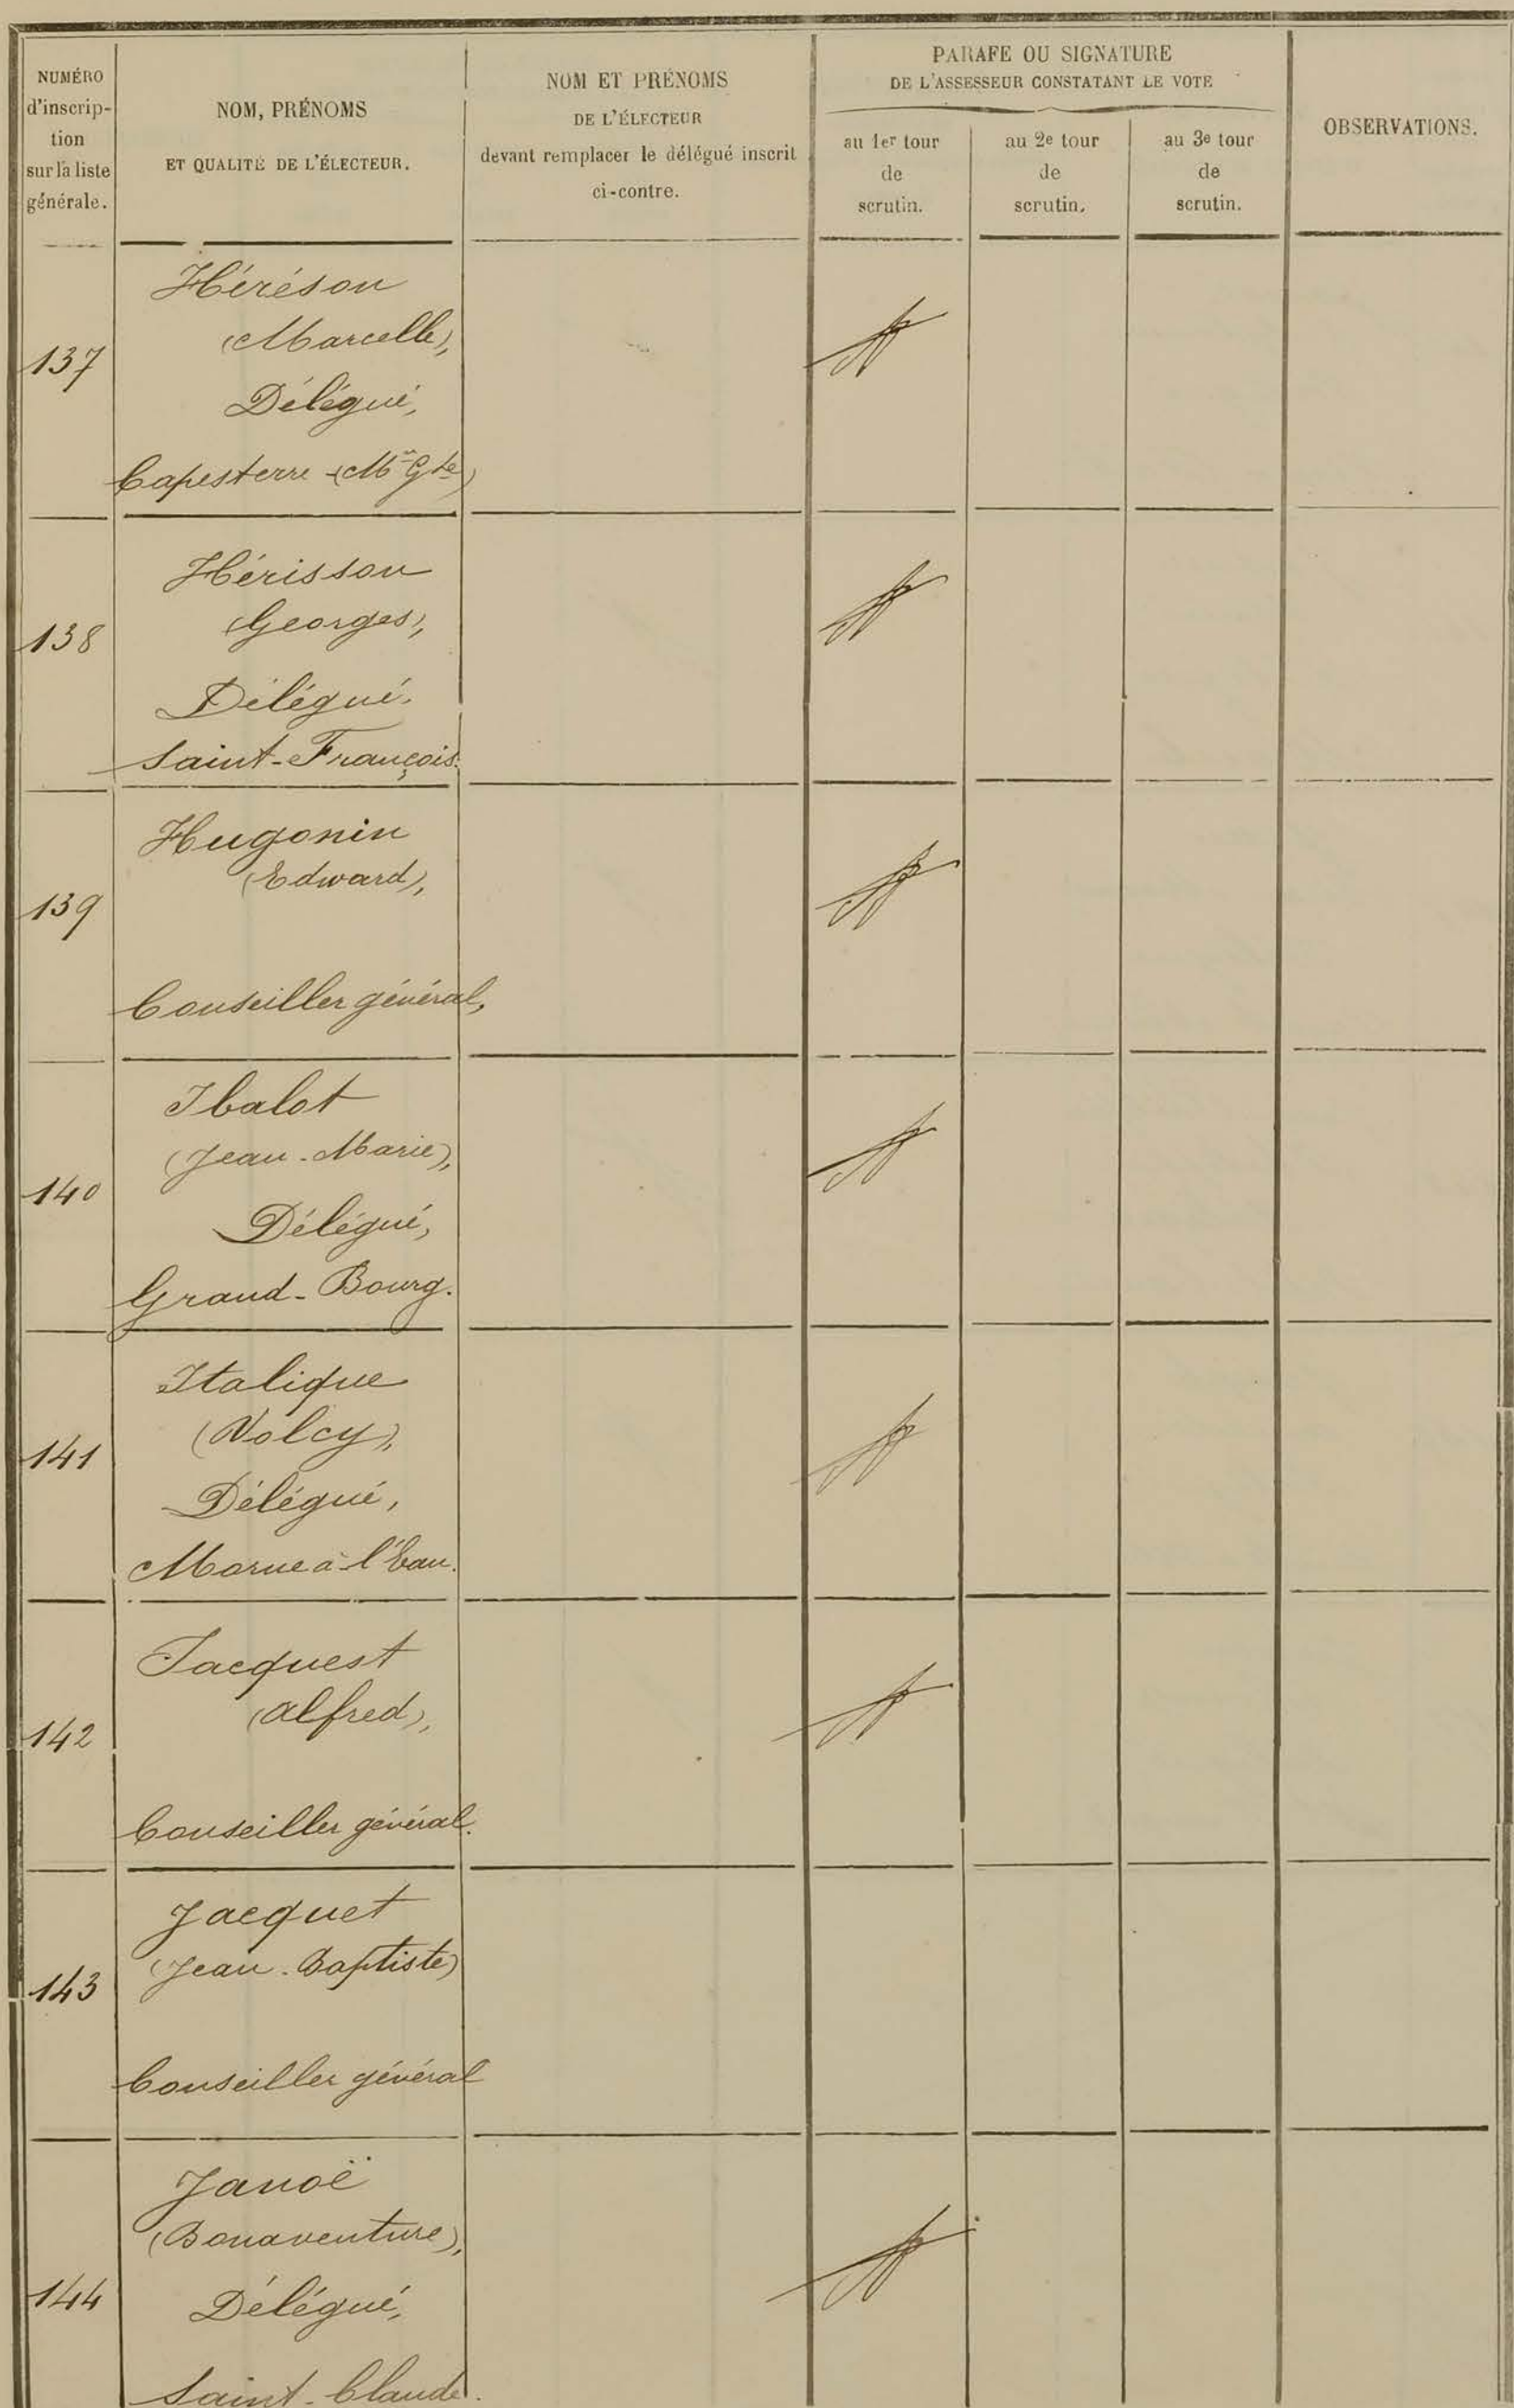 NUMÉRO
d'inscrip-
tion
sur la liste
générale.
NOM, PRÉNOMS
ET QUALITÉ DE L'ÉLECTEUR.
NOM ET PRÉNOMS
DE L'ÉLECTEUR
devant remplacer le délégué inscrit
ci-contre.
PARAFE OU SIGNATURE
DE L'ASSESSEUR CONSTATANT LE VOTE
au 1er tour
de
scrutin.
au 2e tour
de
scrutin.
au 3e tour
de
scrutin.
OBSERVATIONS.
137
Héréson
(Marcelle),
Délégué,
Capesterre (Mie Gte)
138
Hérisson
(Georges),
Délégué.
Saint-François.
139
Hugonin
(Edward),
Conseiller général,
140
Ibalot
(Jean-Marie),
Délégué,
Grand-Bourg.
141
Italique
(Volcy),
Délégué,
Morne à-l'Eau.
142
Jacquest
(Alfred),
Conseiller général.
143
Jacquet
(Jean-Baptiste)
Conseiller général
144
Janoë
(Bonaventure),
Délégué,
Saint-Claude.